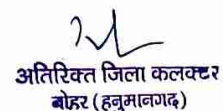 अतिरिक्त जिला कलक्टर
बोहर (हनुमानगढ़)